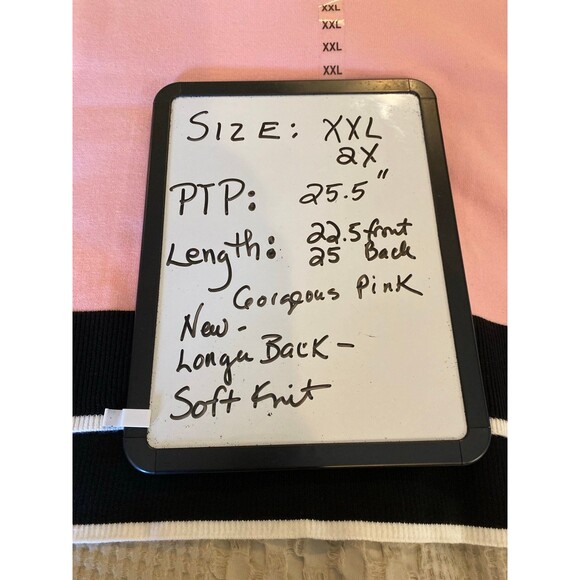 XXL
XXL
XXL
XXL
SIZE: XXL
2X
PTP: 25.5"
Length: 22.5 front
25 Back
Gorgeous Pink
New -
Longer Back -
Soft Knit